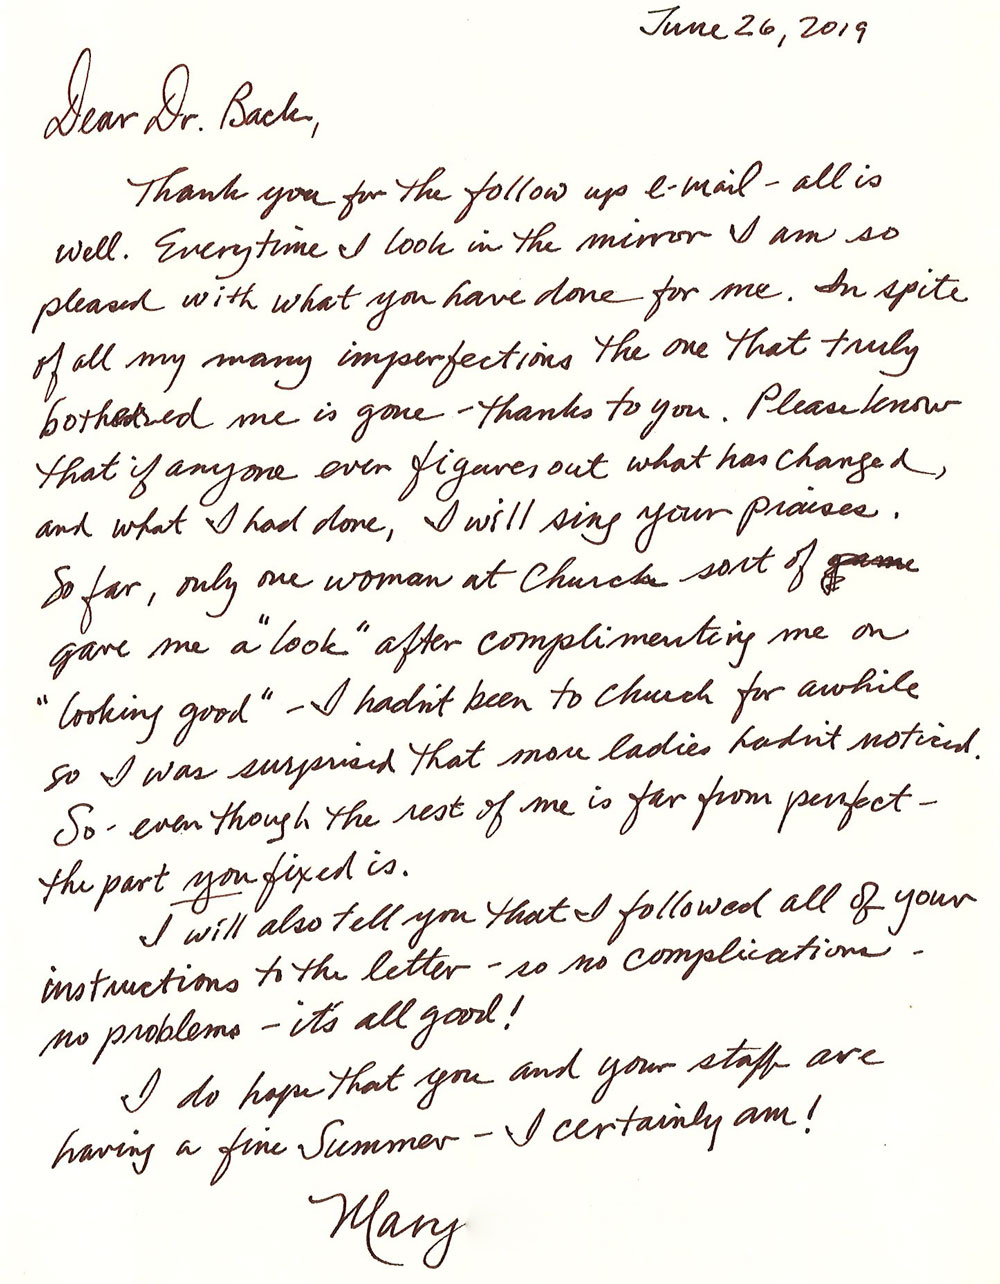 June 26, 2019
Dear Dr. Back,
Thank you for the follow up e-mail - all is
well. Everytime I look in the mirror I am so
pleased with what you have done for me. In spite
of all my many imperfections the one that truly
bothered me is gone - thanks to you. Please know
that if anyone ever figures out what has changed,
and what I had done, I will sing your praises.
So far, only one woman at Church sort of game
gave me a "look" after complimenting me on
"looking good" - I hadn't been to church for awhile
so I was surprised that more ladies hadn't noticed.
So - even though the rest of me is far from perfect -
the part you fixed is.
I will also tell you that I followed all of your
instructions to the letter - so no complications -
no problems - it's all good!
I do hope that you and your staff are
having a fine Summer - I certainly am!
Mary